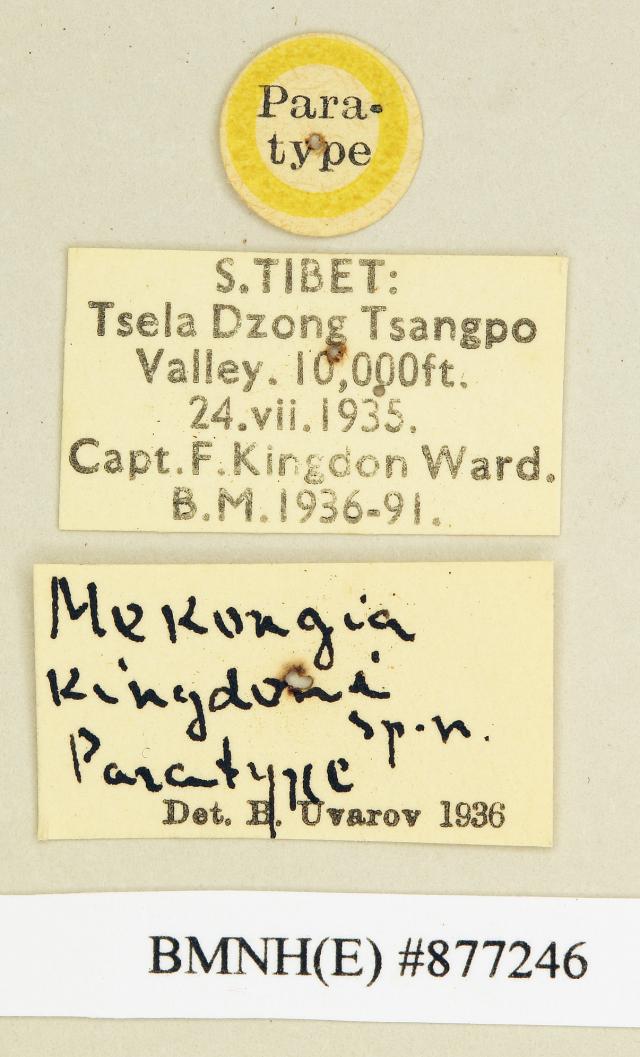 Para-
type
S.TIBET:
Tsela Dzong Tsangpo
Valley. 10,000ft.
24.vii.1935.
Capt.F.Kingdon Ward.
B.M.1936-91.
Mekongia
kingdoni
sp.n.
Paratype
Det. B. Uvarov 1936
BMNH(E) #877246